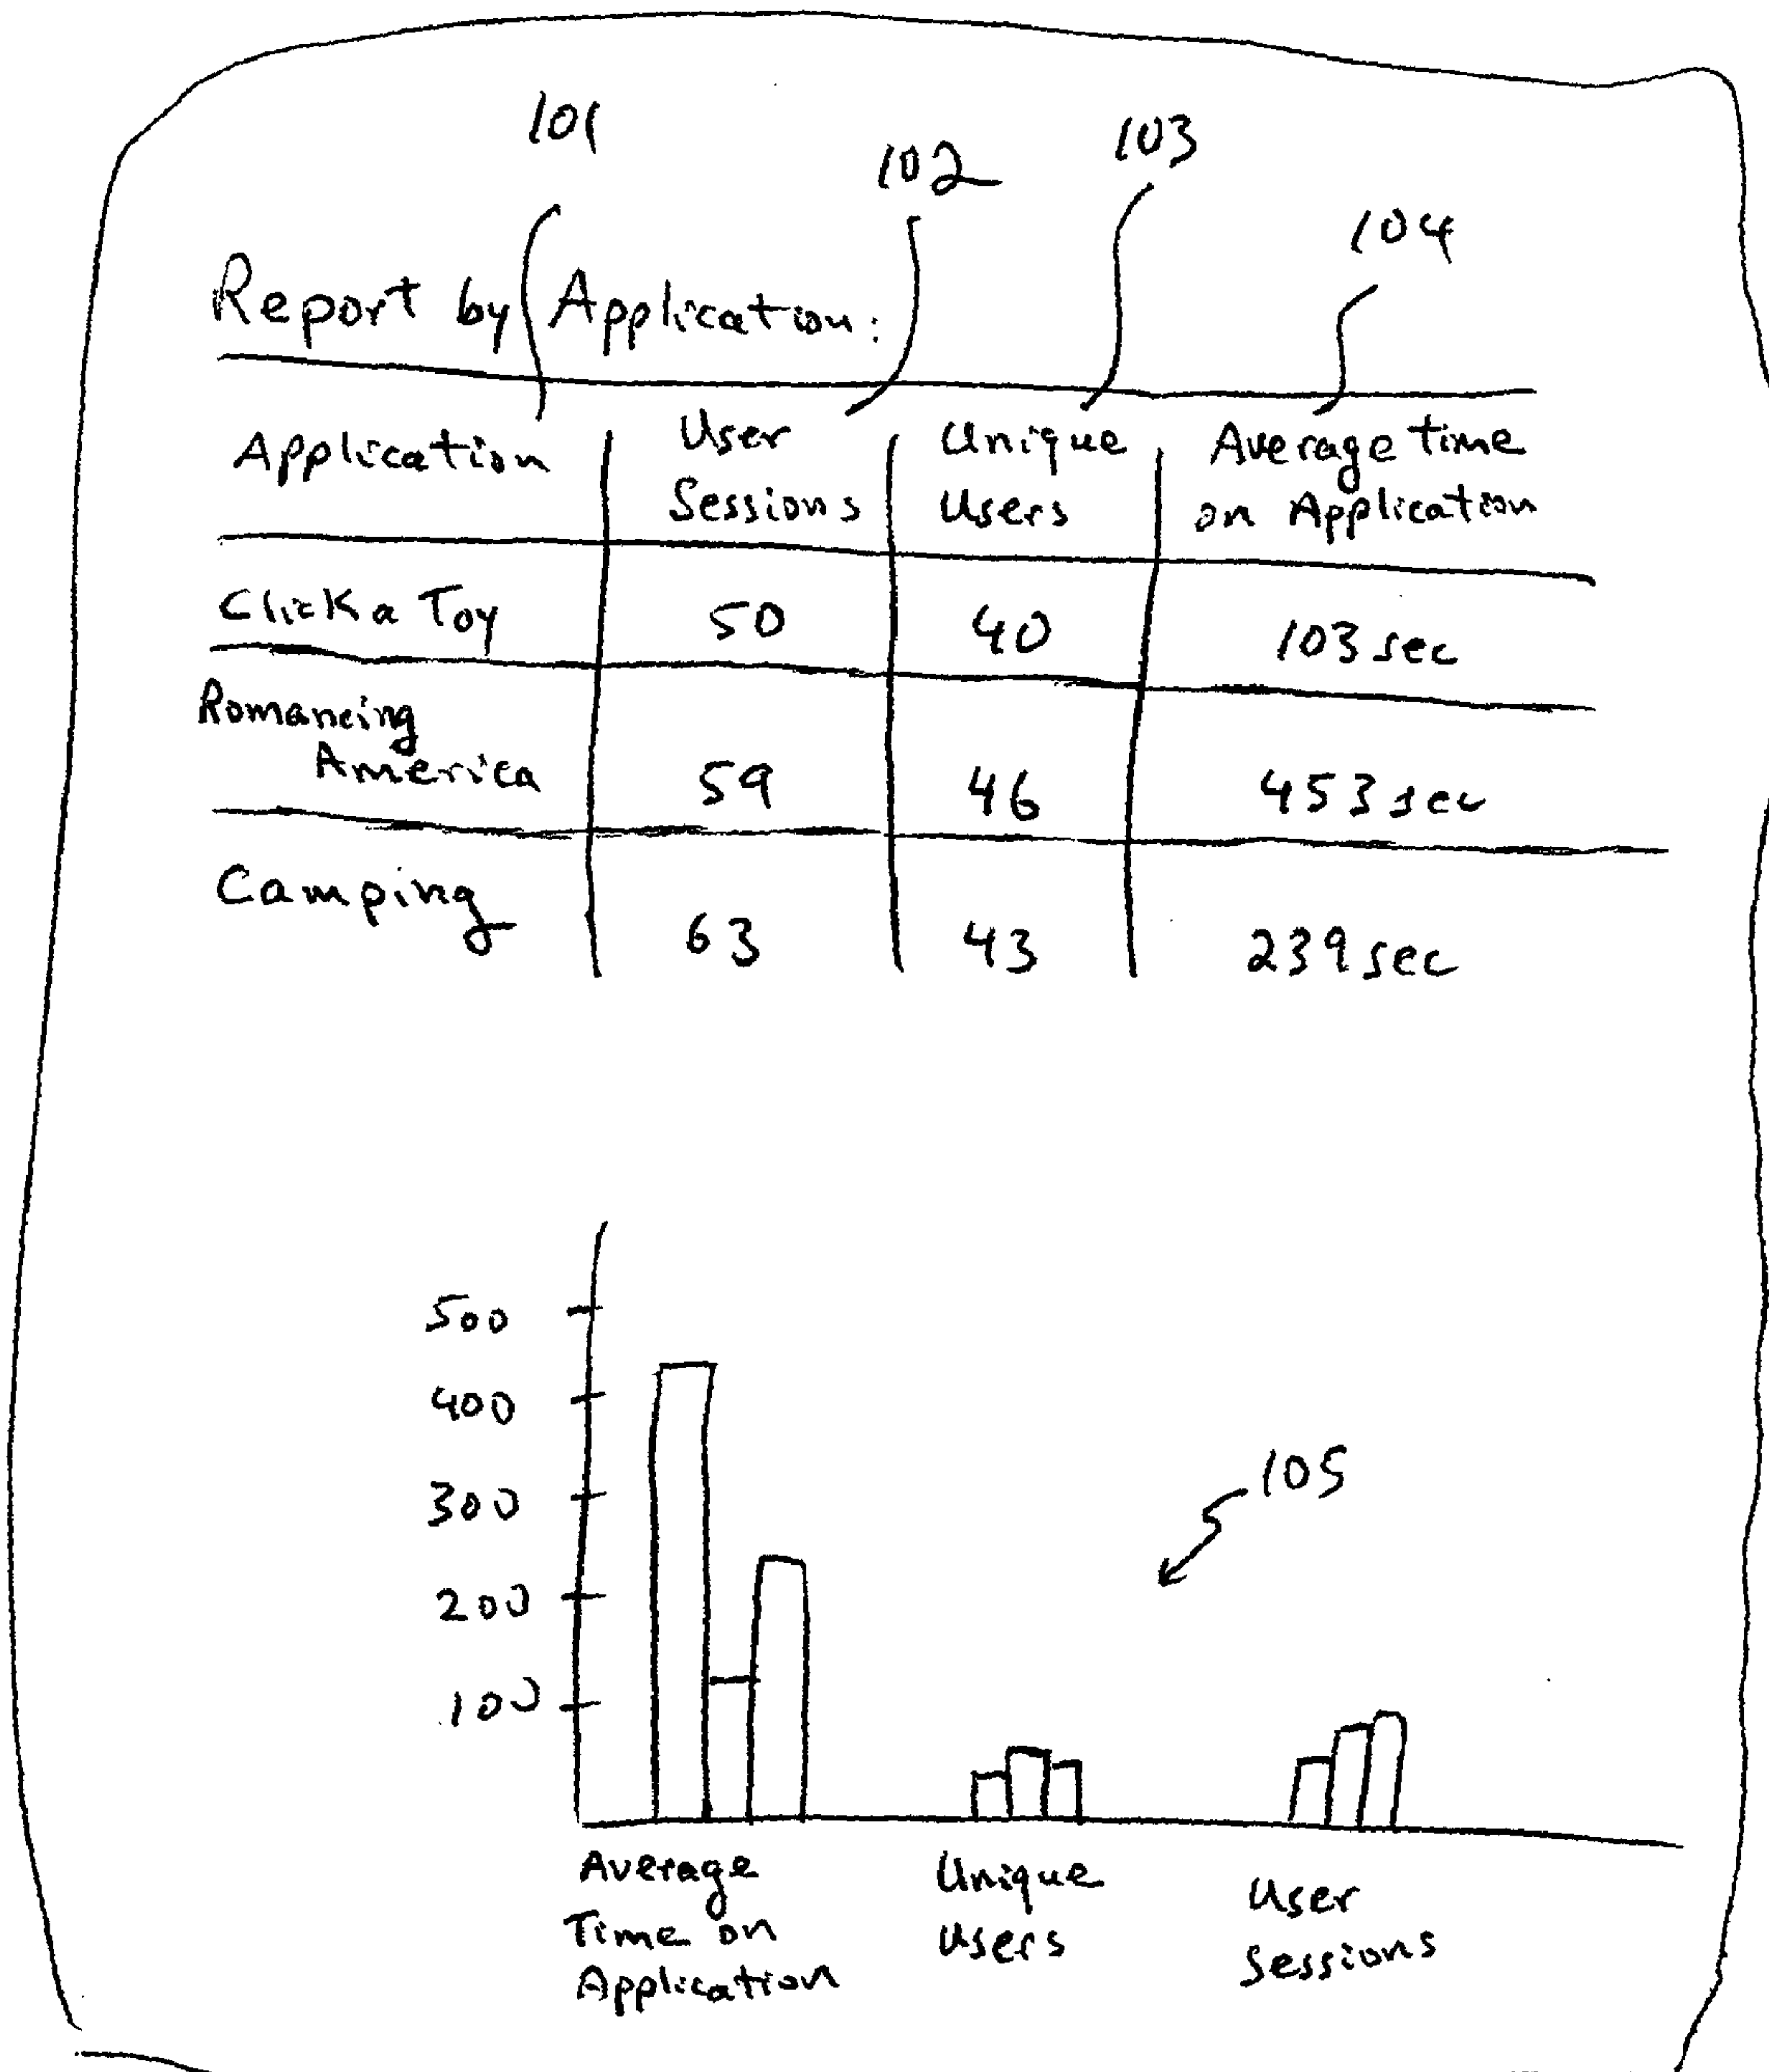 101
102
103
104
Report by Application:
Application User Sessions Unique Users Average time on Application
Click a Toy 50 40 103 sec
Romancing
America 59 46 453 sec
Camping
63 43 239 sec
500
400
105
300
200
100
Average Time on Application
Unique Users
User Sessions